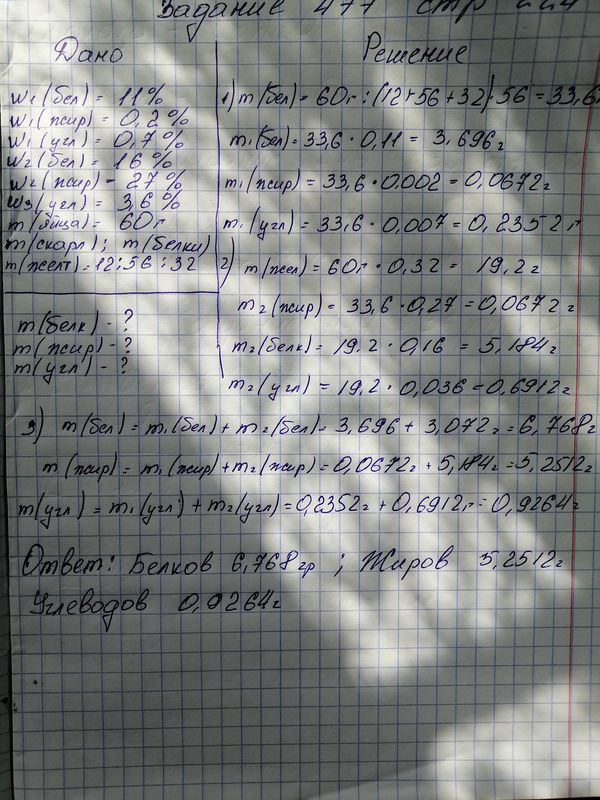 Задание 477 стр
Дано
w₁(бел) = 11%
w₁(жир) = 0,2%
w₁(угл) = 0,7%
w₂(бел) = 16%
w₂(жир) - 27%
w₃(угл) = 3,6%
m(яйца) = 60г
m(скарл); m(белки)
m(желт) = 12:56:32
m(белк) - ?
m(жир) - ?
m(угл) - ?
Решение
1) m(бел) = 60г : (12+56+32)·56 = 33,6г
m₁(бел) = 33,6 · 0,11 = 3,696г
m₁(жир) = 33,6 · 0,002 = 0,0672г
m₁(угл) = 33,6 · 0,007 = 0,2352г
2) m(жел) = 60г · 0,32 = 19,2г
m₂(жир) = 33,6 · 0,27 = 0,0672г
m₂(белк) = 19.2 · 0,16 = 5,184г
m₂(угл) = 19.2 · 0,036 = 0,6912г
3) m(бел) = m₁(бел) + m₂(бел) = 3,696 + 3,072г = 6,768г
m(жир) = m₁(жир) + m₂(жир) = 0,0672г + 5,184г = 5,2512г
m(угл) = m₁(угл) + m₂(угл) = 0,2352г + 0,6912г = 0,9264г
Ответ: Белков 6,768гр ; Жиров 5,2512г
Углеводов 0,9264г